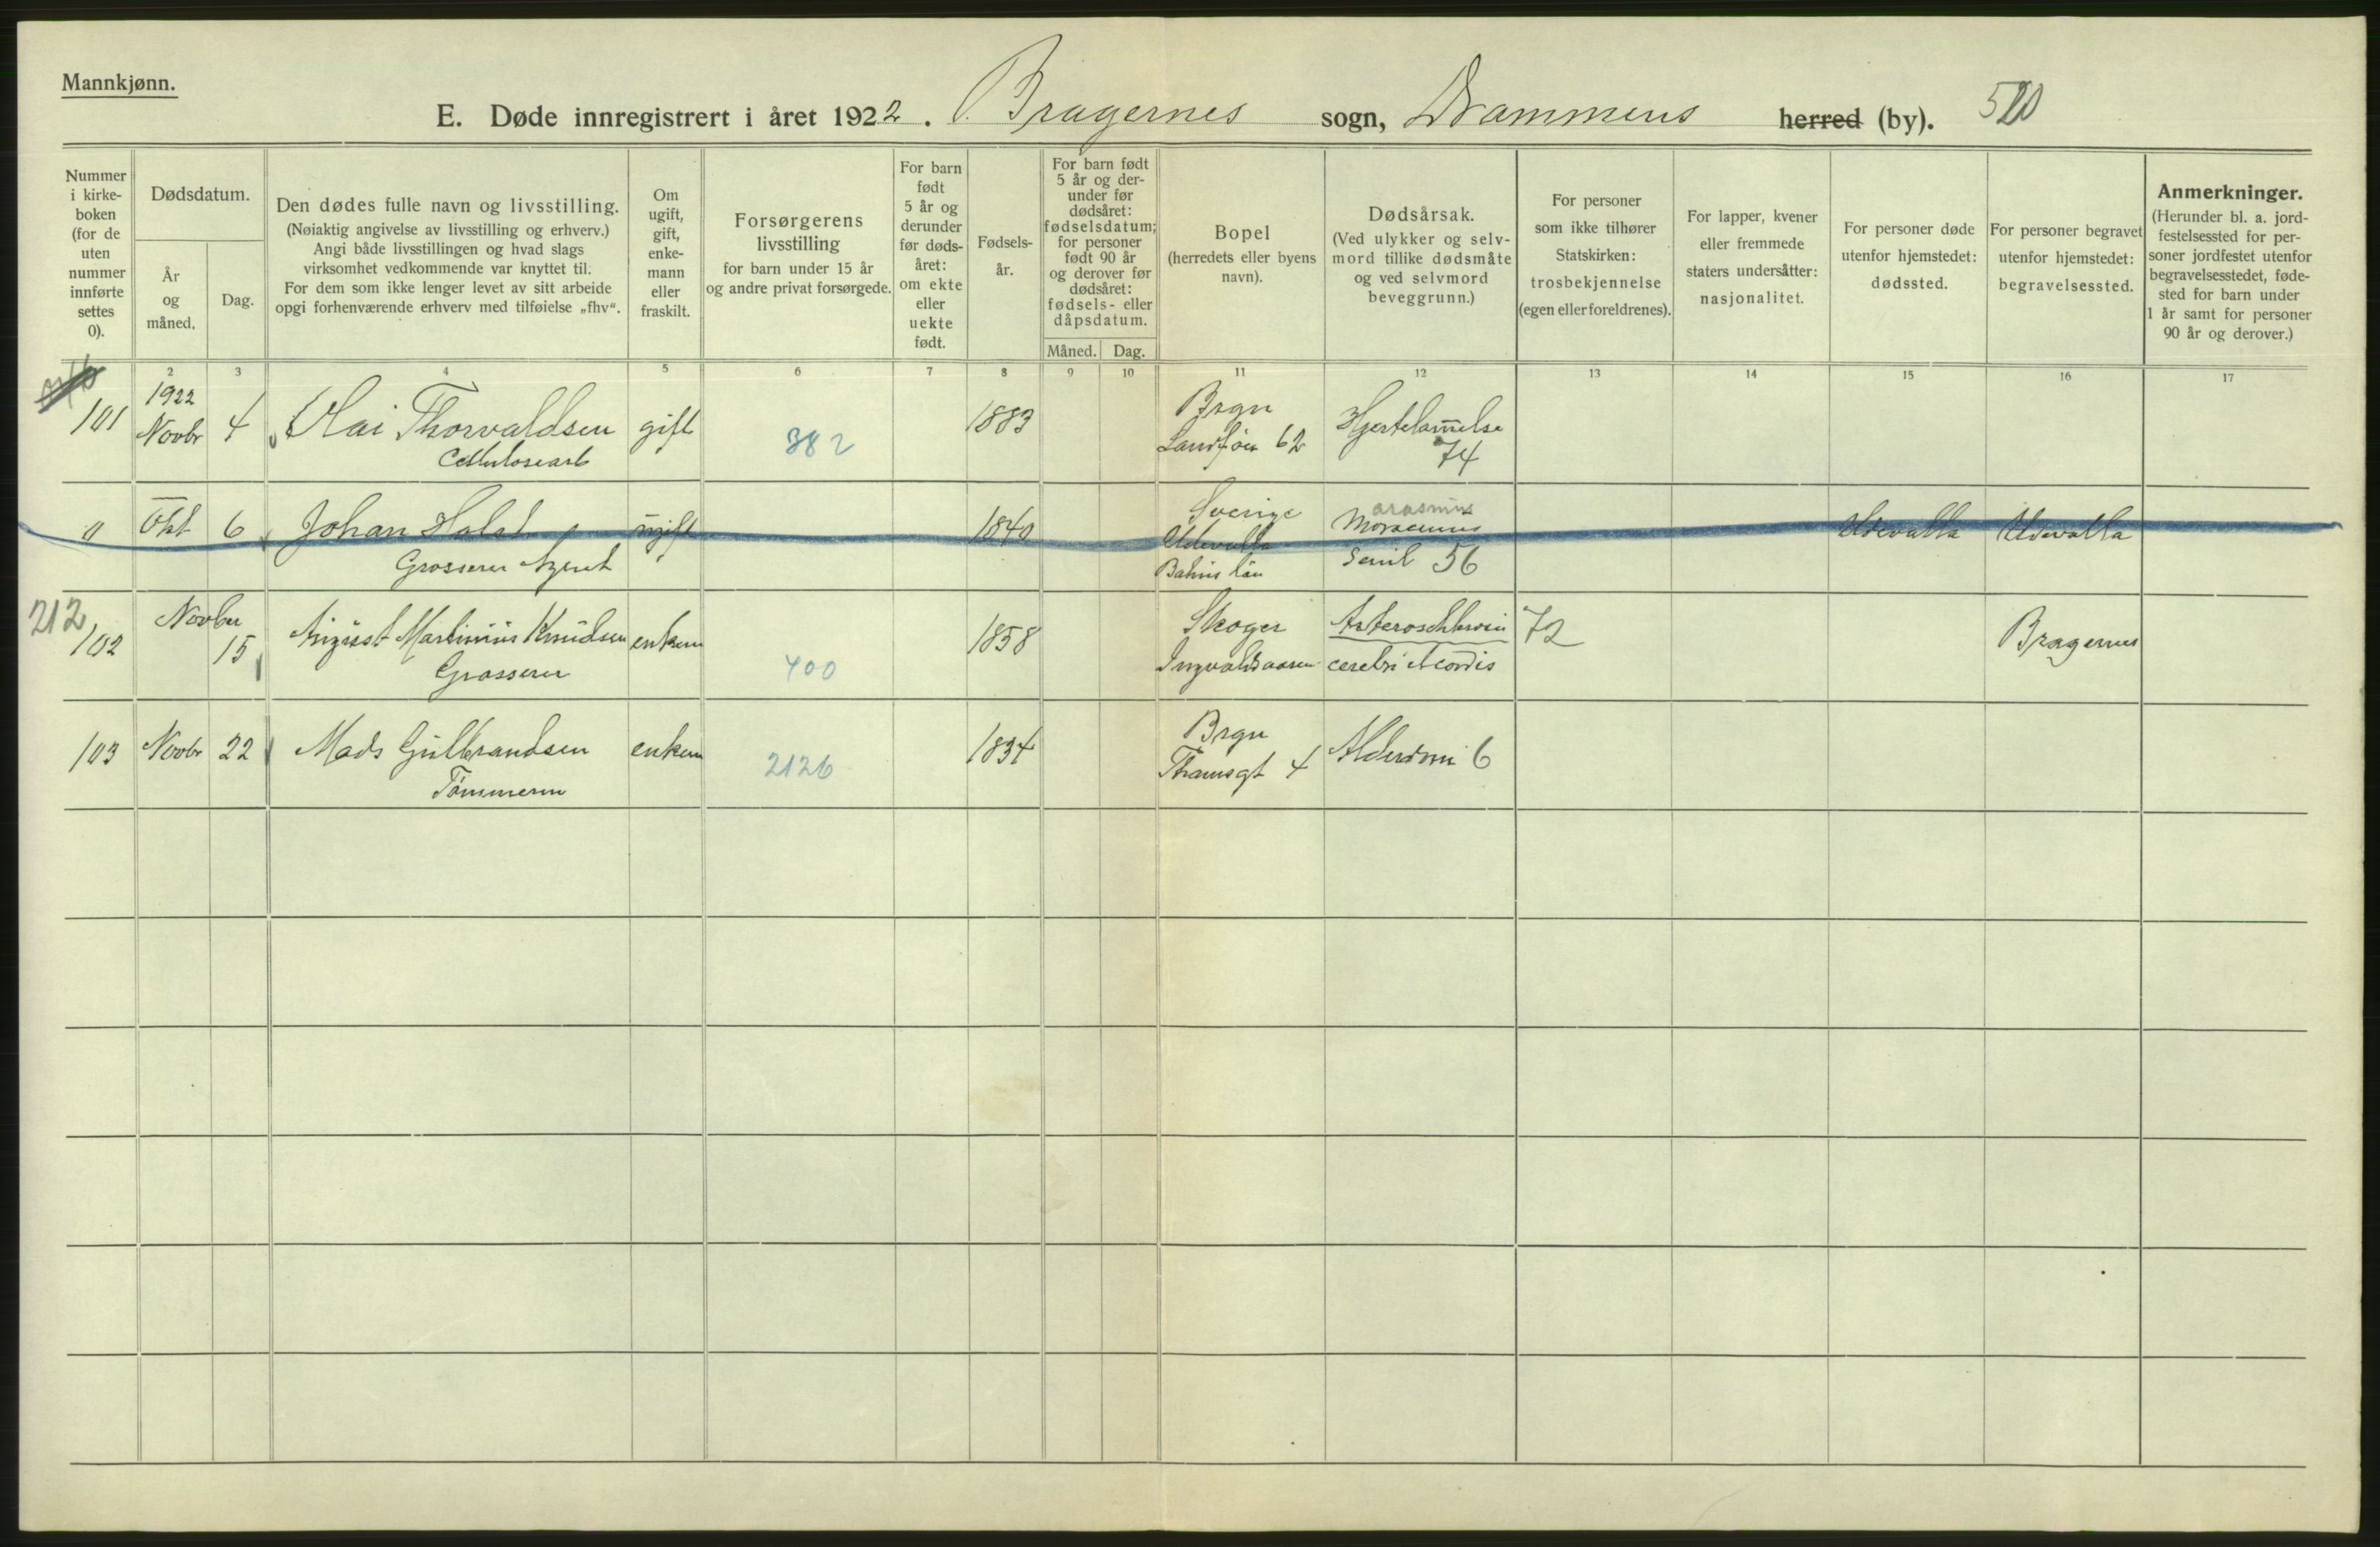 Mannkjønn.
E. Døde innregistrert i året 1922. Bragernes sogn, Drammens herred (by). 520
Nummer
i kirke-
boken
(for de
uten
nummer
innførte
settes
0).
Dødsdatum.
År
og
måned.
Dag.
Den dødes fulle navn og livsstilling.
(Nøiaktig angivelse av livsstilling og erhverv.)
Angi både livsstillingen og hvad slags
virksomhet vedkommende var knyttet til.
For dem som ikke lenger levet av sitt arbeide
opgi forhenværende erhverv med tilføielse „fhv“.
Om
ugift,
gift,
enke-
mann
eller
fraskilt.
Forsørgerens
livsstilling
for barn under 15 år
og andre privat forsørgede.
For barn
født
5 år og
derunder
før døds-
året:
om ekte
eller
uekte
født.
Fødsels-
år.
For barn født
5 år og der-
under før
dødsåret:
fødselsdatum;
for personer
født 90 år
og derover før
dødsåret:
fødsels- eller
dåpsdatum.
Måned. Dag.
Bopel
(herredets eller byens
navn).
Dødsårsak.
(Ved ulykker og selv-
mord tillike dødsmåte
og ved selvmord
beveggrunn.)
For personer
som ikke tilhører
Statskirken:
trosbekjennelse
(egen eller foreldrenes).
For lapper, kvener
eller fremmede
staters undersåtter:
nasjonalitet.
For personer døde
utenfor hjemstedet:
dødssted.
For personer begravet
utenfor hjemstedet:
begravelsessted.
Anmerkninger.
(Herunder bl. a. jord-
festelsessted for per-
soner jordfestet utenfor
begravelsesstedet, føde-
sted for barn under
1 år samt for personer
90 år og derover.)
2 3 4 5 6 7 8 9 10 11 12 13 14 15 16 17
101
1922
Novbr 4
Olai Thorvaldsen
Cellulosearb
gift
382
1883
Brgn
Landføn 62
Hjertelam̄else
74
" Okt 6
Johan Halst
Grosserer Agent
ugift
1840
Sverige
Udevalla
Bahus län
arasmus
Senil 56
Udevalla
Udevalla
212
102
Novber
15
August Martinius Knudsen
Grosserer
enkem
400
1858
Skoger
Ingvaldsaasen
Arteroschlerosis
cerebri et cordis
72
Bragernes
103 Novbr 22
Mads Gulbrandsen
Tømmerm
enkem
2126
1834
Brgn
Thamsgt 4
Alderdom 6